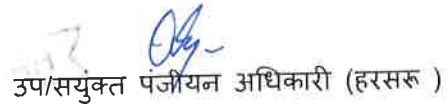 उप/सयुंक्त पंजीयन अधिकारी (हरसरू )